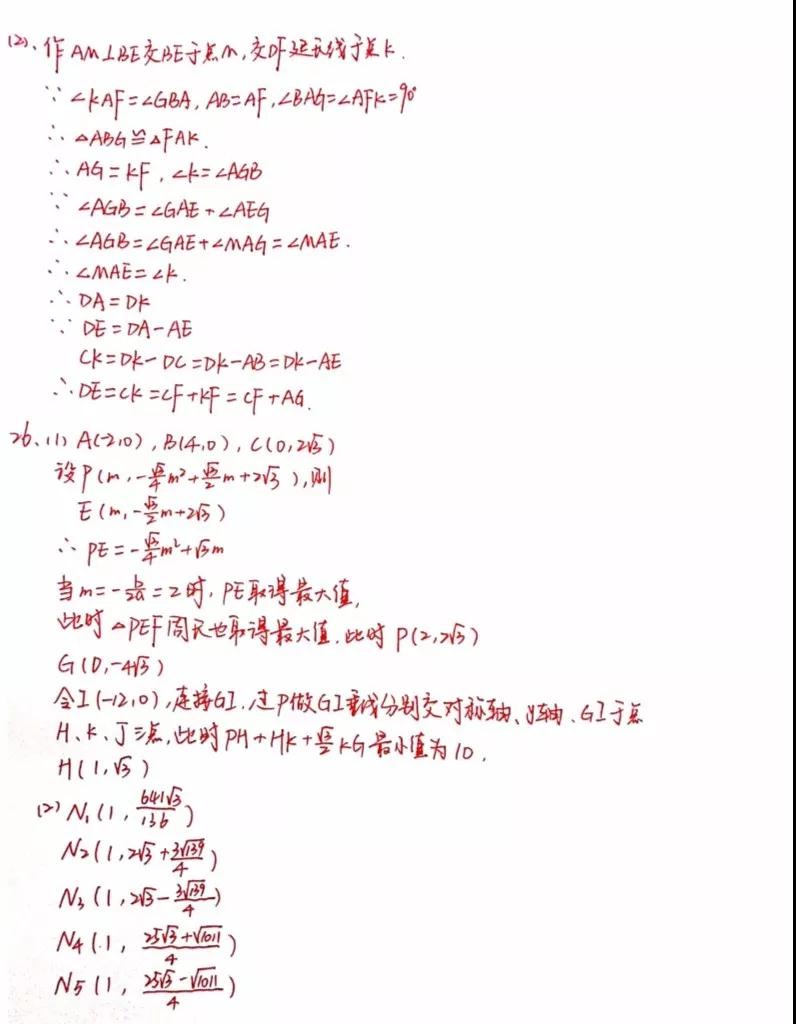 (2)、作AM⊥BE交BE于点M,交DF延长线于点K.
∵ ∠KAF=∠GBA, AB=AF, ∠BAG=∠AFK=90°
∴ △ABG≌△FAK.
∴ AG=KF, ∠K=∠AGB
∵ ∠AGB=∠GAE+∠AEG
∴ ∠AGB=∠GAE+∠MAG=∠MAE.
∴ ∠MAE=∠K.
∴ DA=DK
∵ DE=DA-AE
CK=DK-DC=DK-AB=DK-AE
∴ DE=CK=CF+KF=CF+AG.
26、(1) A(-2,0), B(4,0), C(0,2√3)
设P(m, -√3/4m²+√3/2m+2√3),则
E(m, -√3/2m+2√3)
∴ PE=-√3/4m²+√3m
当m=-b/2a=2时,PE取得最大值,
此时△PEF周长也取得最大值.此时P(2,2√3)
G(0,-4√3)
令I(-12,0),连接GI,过P做GI垂线分别交对称轴、y轴、GI于点
H、K、J三点,此时PH+HK+√3/2KG最小值为10.
H(1,√3)
(2) N₁(1, 641√3/136)
N₂(1, 2√3+3√139/4)
N₃(1, 2√3-3√139/4)
N₄(1, 25√3+√1011/4)
N₅(1, 25√3-√1011/4)